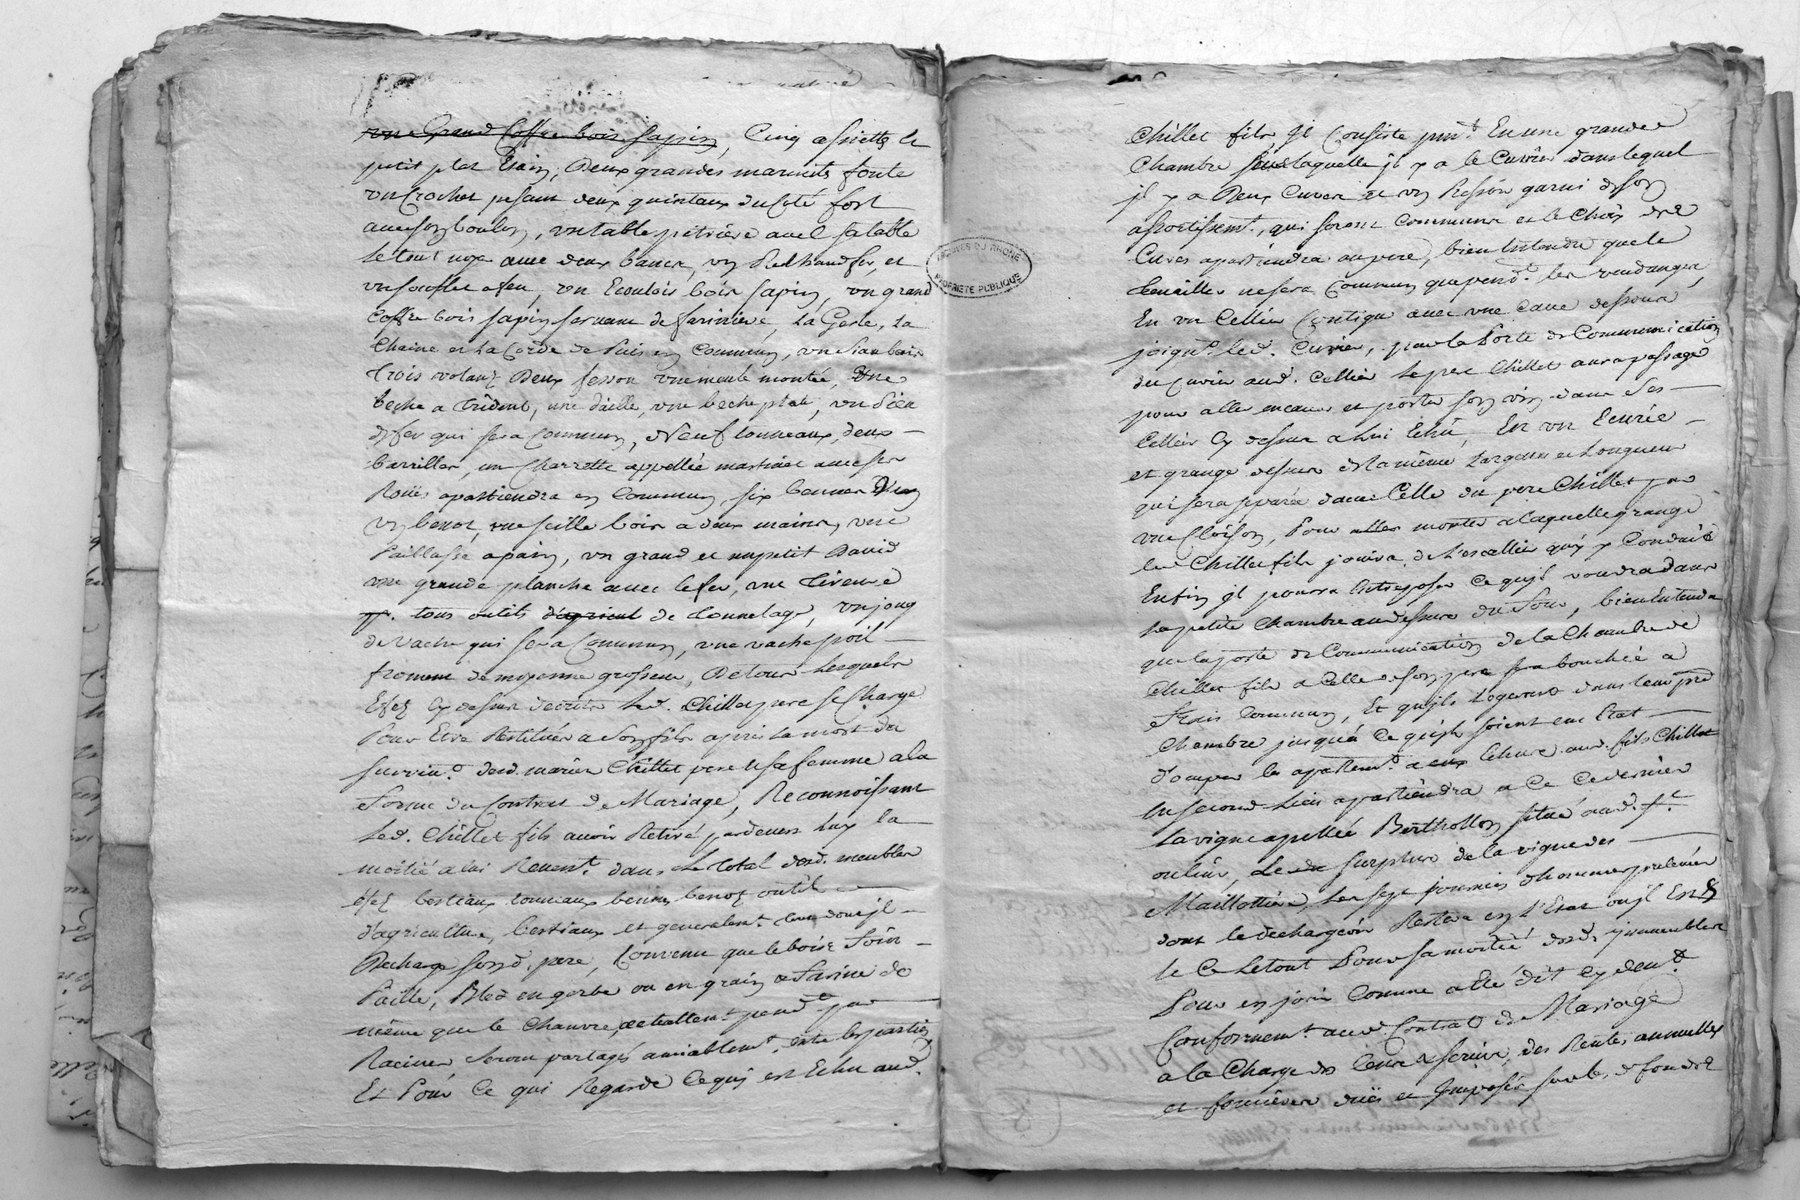 une Grand Coffre bois sapin, Cinq assiettes et
petit plat étain, Deux grandes marmites fonte
un Crochet pesant deux quintaux du coté fort
avec son boulon, une table pétriere avec sa table
le tout noyé avec deux bancs, un Rechaud fer, et
un souflet a feu, un Ecouloir bois sapin, un grand
Coffre bois sapin servant de fariniere, la Gerle, la
Chaine et La Corde de Puis en Commun, une
trois volans Deux une meule montée, Une
beche a trident, une daille, une beche plate, un
de fer qui sera Commun, Neuf tonneaux, deux
barrilles, un Charrette appellée martinée avec ses
Roües apartiendra en Commun, six bennes
un benot, une seille bois a deux mains, une
Paillasse a pain, un grand et un petit David
une grande planche avec le fer, une tireuse
tous outils d'agricul de tonnelage, un joug
de Vache qui sera Commun, une vache poil
froment de moyenne grosseur, De tous Lesquels
Efez Cy dessus décrits led. Chillet pere se Charge
Pour Etre Restitués a Son fils après La mort du
surviv.t desd. mariés Chillet pere et sa femme a la
forme du Contrat de Mariage, Reconnoissant
Led. Chillet fils avoir Retiré pardevers luy la
moitié a lui Reven.t dans Le total desd. meubles
Efez bestiaux tonneaux bennes benoz outils
d'agriculture, bestiaux et generalem.t dont il
Decharge sond. pere, Convenu que le bois, foin
Paille, Bled en gerbe ou en grain et farine de
même que le Chanvre, actuellem.t pend.t par
Racines seront partagés amiablem.t entre les parties
Et Pour Ce qui Regarde Ce qui est Echu aud.
ARCHIVES DU RHONE
PROPRIETE PUBLIQUE
Chillet fils, il Consiste prim.t En une grande
Chambre sous laquelle il y a le Cuvier dans lequel
il y a Deux Cuves et un Pressoir garni de son
assortissem.t, qui seront Communs et le Choix des
Cuves apartiendra au pere, bien Entendu que le
tenailler ne sera Commun que pend.t les vendanges,
En un Cellier Contigu avec une cave dessous
joign.t led. Cuvier, par la Porte de Communication
du Cuvier aud. Cellier Le pere Chillet aura passage
pour aller encaver et porter son vin dans Les
Cellier Cy dessus a lui Echu, En un Ecurie
et grange dessus de la même Largeur et Longueur
qui sera separée davec Celle du pere Chillet par
une Cloison, Pour aller monter a laquelle grange
led. Chillet fils jouira de L'escallier qui y Conduit
Enfin il pourra Entreposer Ce qu'il voudra dans
La petite Chambre au dessus du Four, bien Entendu
que la porte de Communication de la Chambre de
Chillet fils a Celle de son pere sera bouchée a
frais Communs, Et qu'ils Logeront dans leur
Chambre jusqu'à Ce qu'ils soient en Etat
d'ocuper les apartem.t a eux échus aud. fils Chillet
En second Lieu apartiendra a Ce Ce dernier
La vigne apellée Berthollon située aud. S.t
oulin, Le surplus de la vigne des
Maillottière, Les sept fournées d'hommes prelevées
dont le dechargeoir Restera en l'Etat où il Est
le Ce Letout Pour sa moitié desd. immeubles
Pour en jouir Comme a été dit Cy dev.t
Conformem.t aud. Contrat de Mariage
a la Charge des Cens et servis, des Rentes annuelles
et foncières düés et Imposés sur les. d. fonds